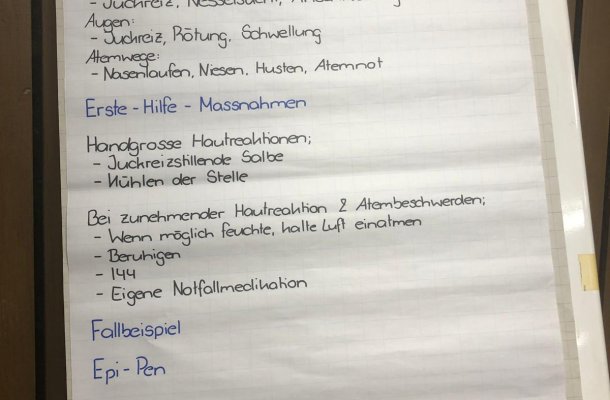 - Juckreiz, Nesselsucht,
Augen:
- Juckreiz, Rötung, Schwellung
Atemwege:
- Nasenlaufen, Niesen, Husten, Atemnot
Erste-Hilfe-Massnahmen
Handgrosse Hautreaktionen;
- Juckreizstillende Salbe
- Kühlen der Stelle
Bei zunehmender Hautreaktion & Atembeschwerden;
- Wenn möglich feuchte, kalte Luft einatmen
- Beruhigen
- 144
- Eigene Notfallmedikation
Fallbeispiel
Epi-Pen